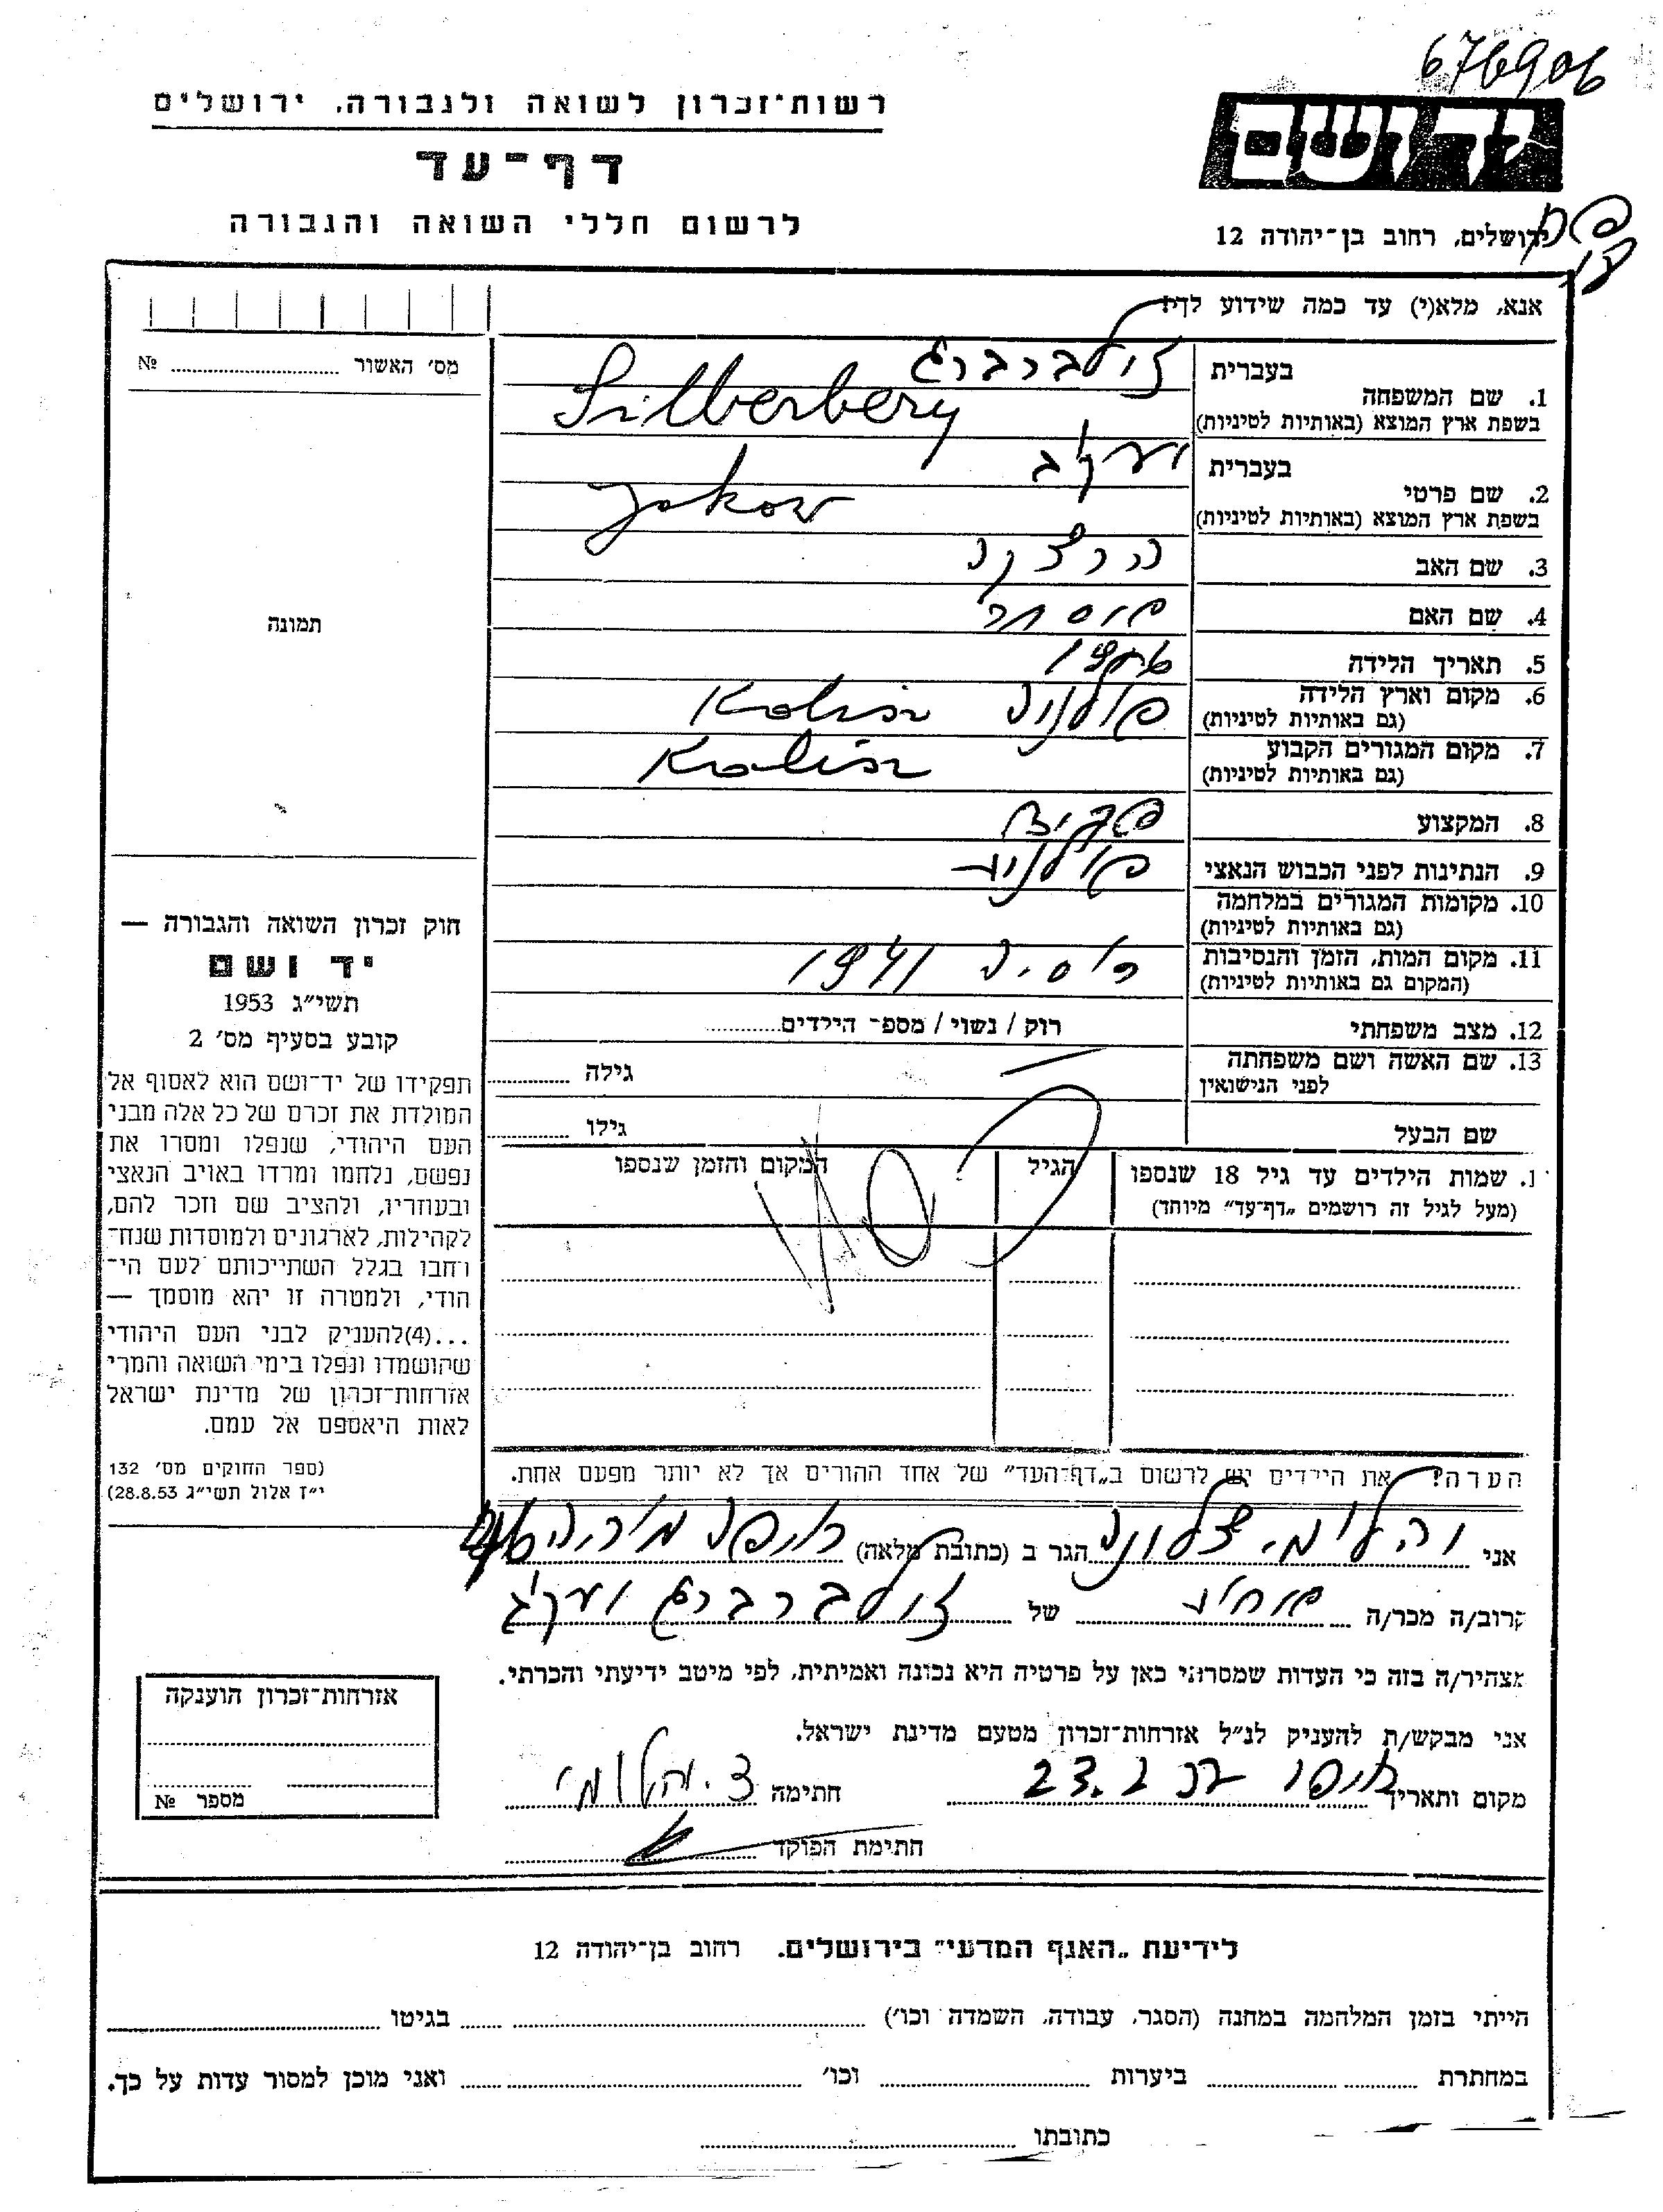 676906
רשות־זכרון לשואה ולגבורה, ירושלים
יד ושם
דף־עד
לרשום חללי השואה והגבורה
ירושלים, רחוב בן־יהודה 12
אנא, מלא(י) עד כמה שידוע לך!
מס׳ האשור № ....................
1. שם המשפחה בעברית זילברברג
בשפת ארץ המוצא (באותיות לטיניות) Silberberg
2. שם פרטי בעברית יעקב
בשפת ארץ המוצא (באותיות לטיניות) Jakow
3. שם האב
4. שם האם
5. תאריך הלידה
6. מקום וארץ הלידה פולניה Kalisz
(גם באותיות לטיניות)
7. מקום המגורים הקבוע Kalisz
(גם באותיות לטיניות)
8. המקצוע פקיד
9. הנתינות לפני הכבוש הנאצי פולנית
10. מקומות המגורים במלחמה
(גם באותיות לטיניות)
11. מקום המות, הזמן והנסיבות רוסיה 1941
(המקום גם באותיות לטיניות)
12. מצב משפחתי רוק / נשוי / מספר הילדים..............
13. שם האשה ושם משפחתה גילה ..............
לפני הנישואין
שם הבעל גילו ..............
שמות הילדים עד גיל 18 שנספו הגיל המקום והזמן שנספו
(מעל לגיל זה רושמים „דף־עד” מיוחד)
הערה! את הילדים יש לרשום ב„דף־העד” של אחד ההורים אך לא יותר מפעם אחת.
תמונה
חוק זכרון השואה והגבורה —
יד ושם
תשי״ג 1953
קובע בסעיף מס׳ 2
תפקידו של יד־ושם הוא לאסוף אל
המולדת את זכרם של כל אלה מבני
העם היהודי, שנפלו ומסרו את
נפשם, נלחמו ומרדו באויב הנאצי
ובעוזריו, ולהציב שם וזכר להם,
לקהילות, לארגונים ולמוסדות שנח־
רבו בגלל השתייכותם לעם הי־
הודי, ולמטרה זו יהא מוסמך —
...(4)להעניק לבני העם היהודי
שהושמדו ונפלו בימי השואה והמרי
אזרחות־זכרון של מדינת ישראל
לאות היאספם אל עמם.
(ספר החוקים מס׳ 132
י״ז אלול תשי״ג 28.8.53)
אני הגר ב (כתובת מלאה)
קרוב/ה מכר/ה של זילברברג יעקב
מצהיר/ה בזה כי העדות שמסרתי כאן על פרטיה היא נכונה ואמיתית, לפי מיטב ידיעתי והכרתי.
אני מבקש/ת להעניק לנ״ל אזרחות־זכרון מטעם מדינת ישראל.
מקום ותאריך 23.2 חתימה
חתימת הפוקד
אזרחות־זכרון הוענקה
מספר №
לידיעת „האגף המדעי” בירושלים, רחוב בן־יהודה 12
הייתי בזמן המלחמה במחנה (הסגר, עבודה, השמדה וכו׳) .............. בגיטו ..............
במחתרת .............. ביערות .............. וכו׳ .............. ואני מוכן למסור עדות על כך.
כתובתו ..............